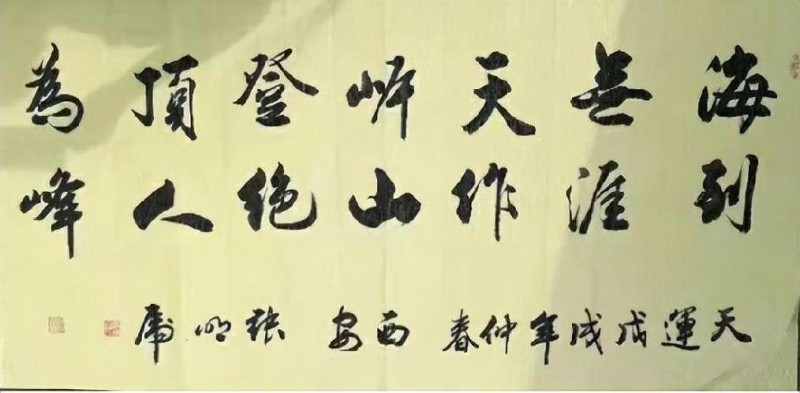 海到
無涯
天作
岸山
登绝
頂人
為峰
天運戊戌年仲春 西安 张明